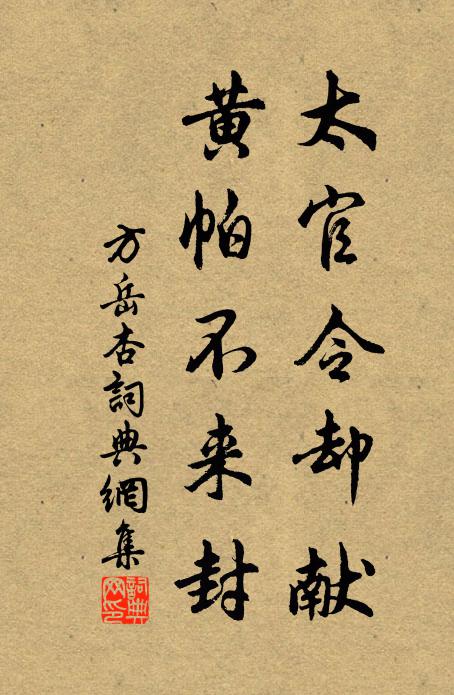 太官令却献
黄帕不来封
方岳杏詞典網集
詞典网印